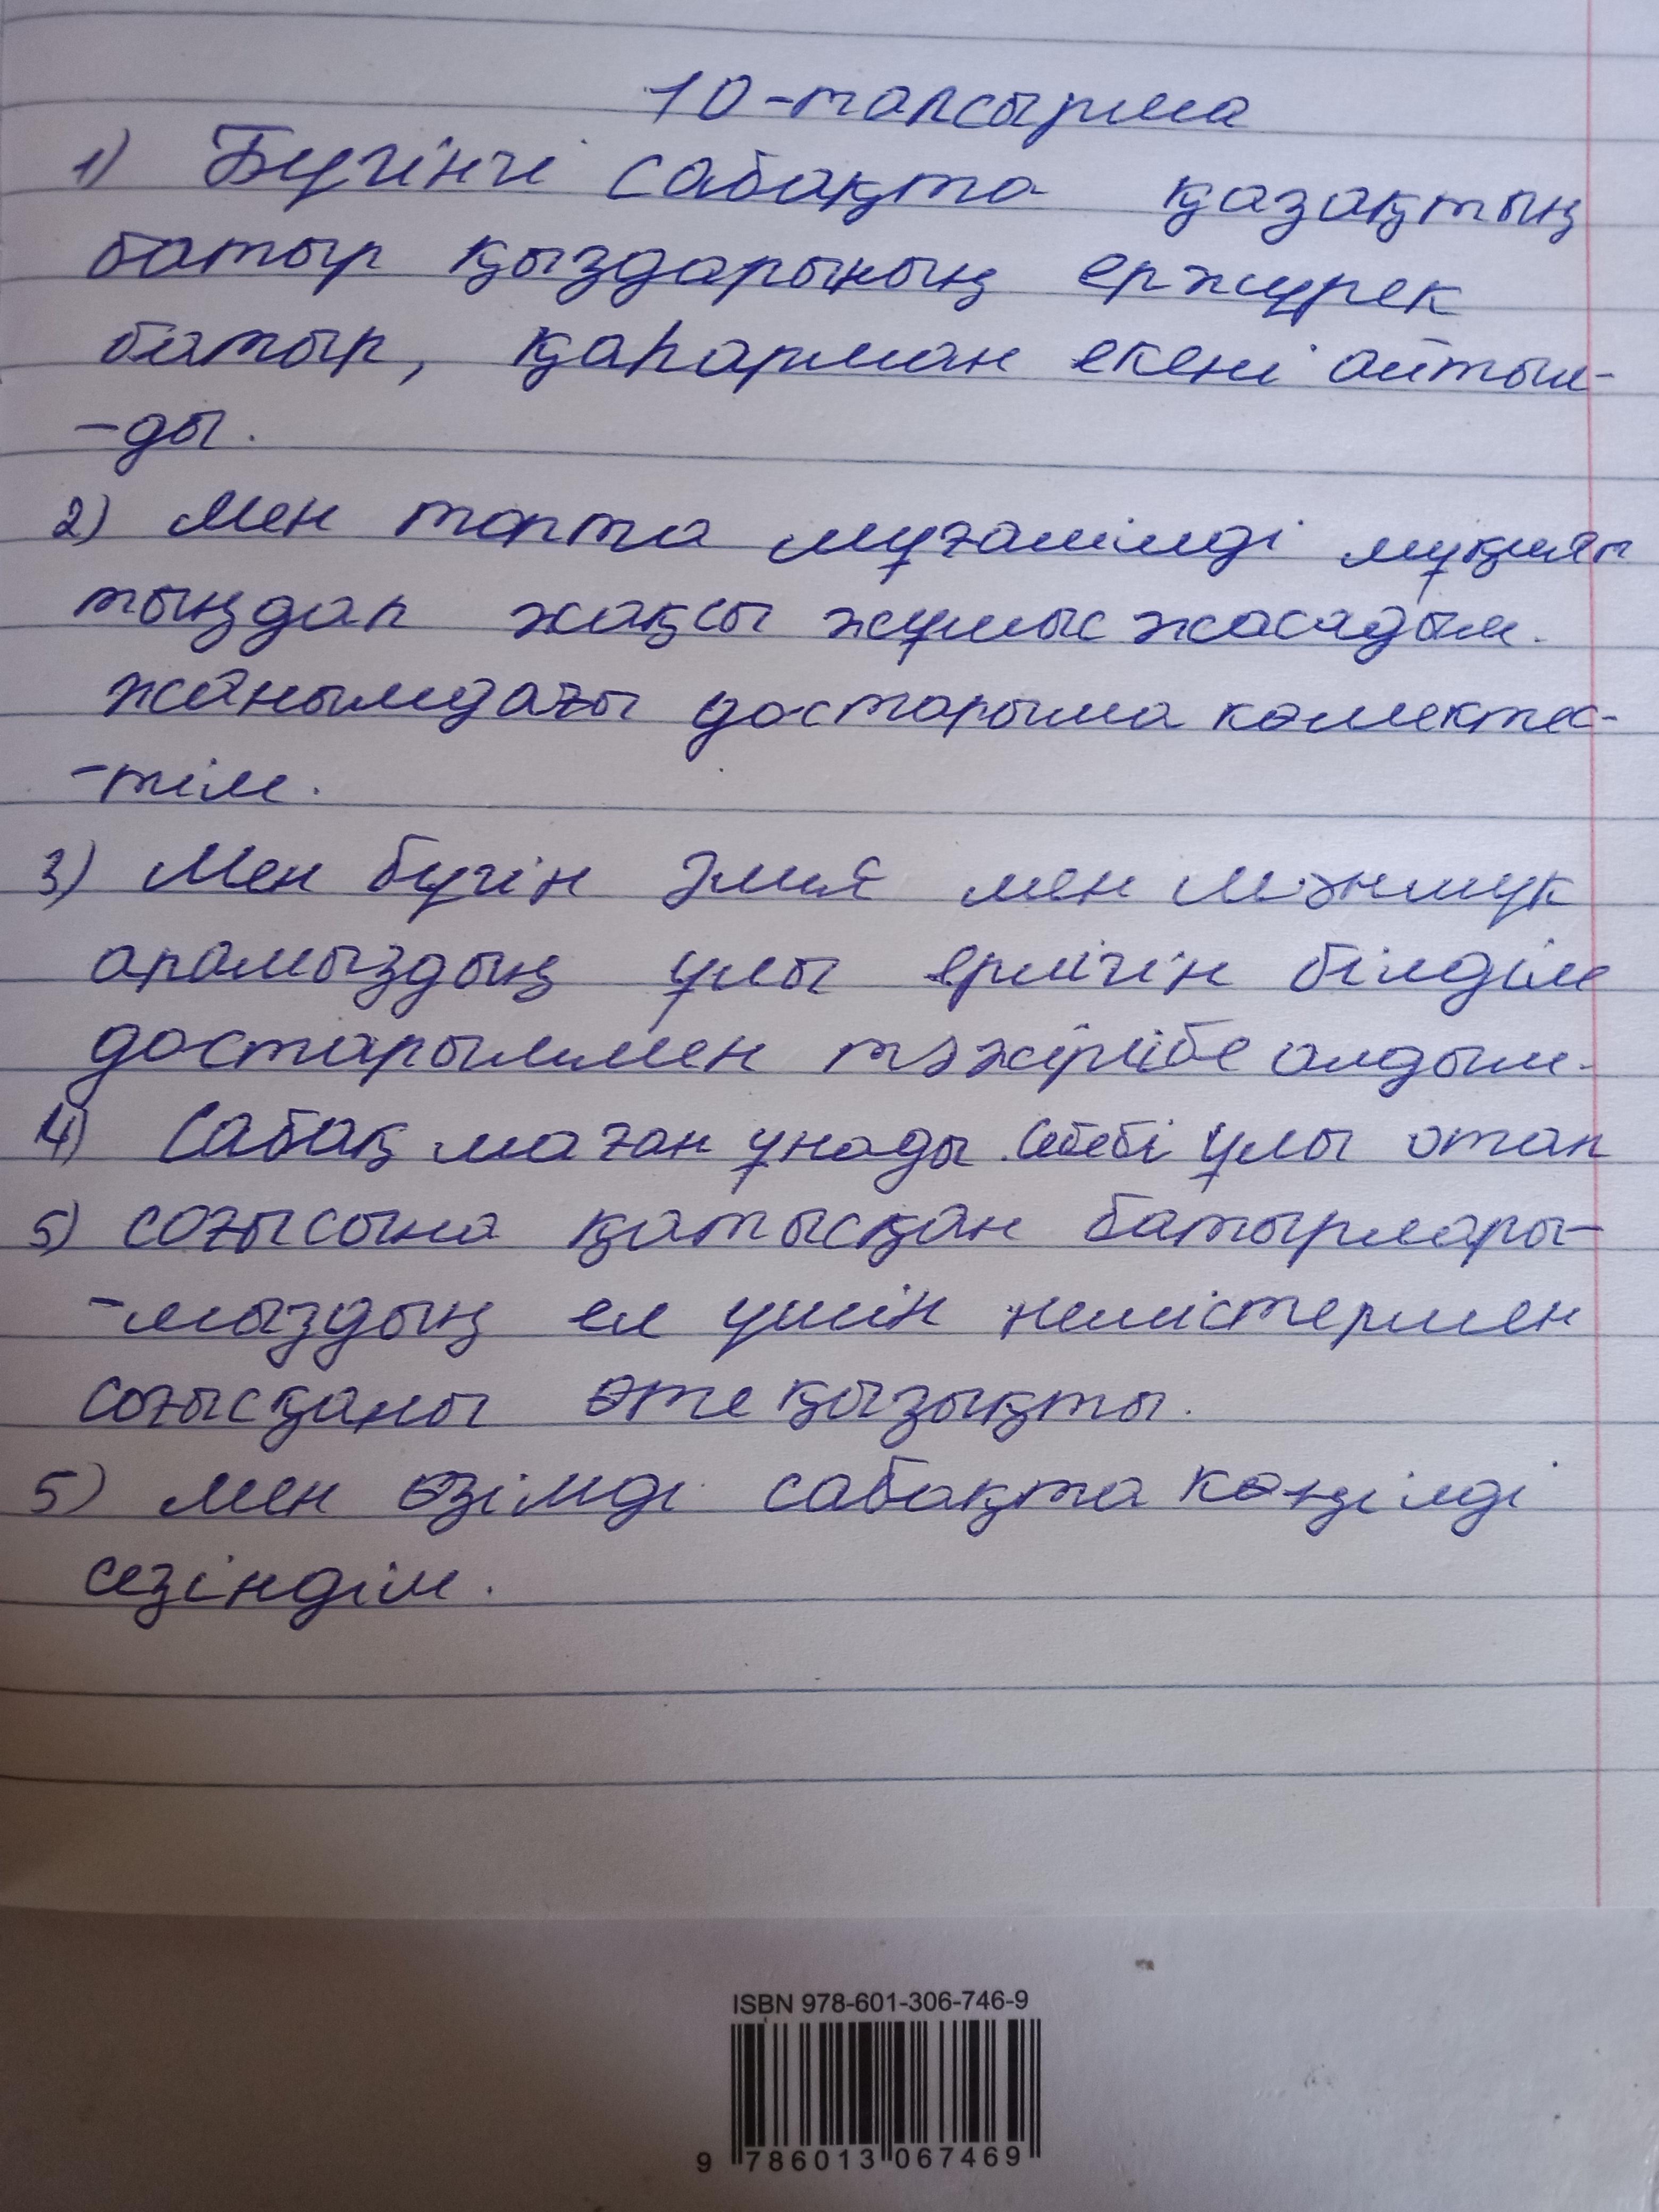 10-тапсырма
1) Бүгінгі сабақта қазақтың
батыр қыздарының ержүрек
батыр, қаһарман екені айтыл-
-ды.
2) Мен топта мұғалімді мұқият
тыңдап жақсы жұмыс жасадым.
жанымдағы достарыма көмектес-
-тім.
3) Мен бүгін Әлия мен Мәншүк
апамыздың ұлы ерлігін білдім
достарыммен тәжірибе алдым.
4) Сабақ маған ұнады. Себебі ұлы отан
5) соғысына қатысқан батырлары-
-мыздың ел үшін немістермен
соғысқаны өте қызықты.
5) мен өзімді сабақта көңілді
сезіндім.
ISBN 978-601-306-746-9
9 786013 067469